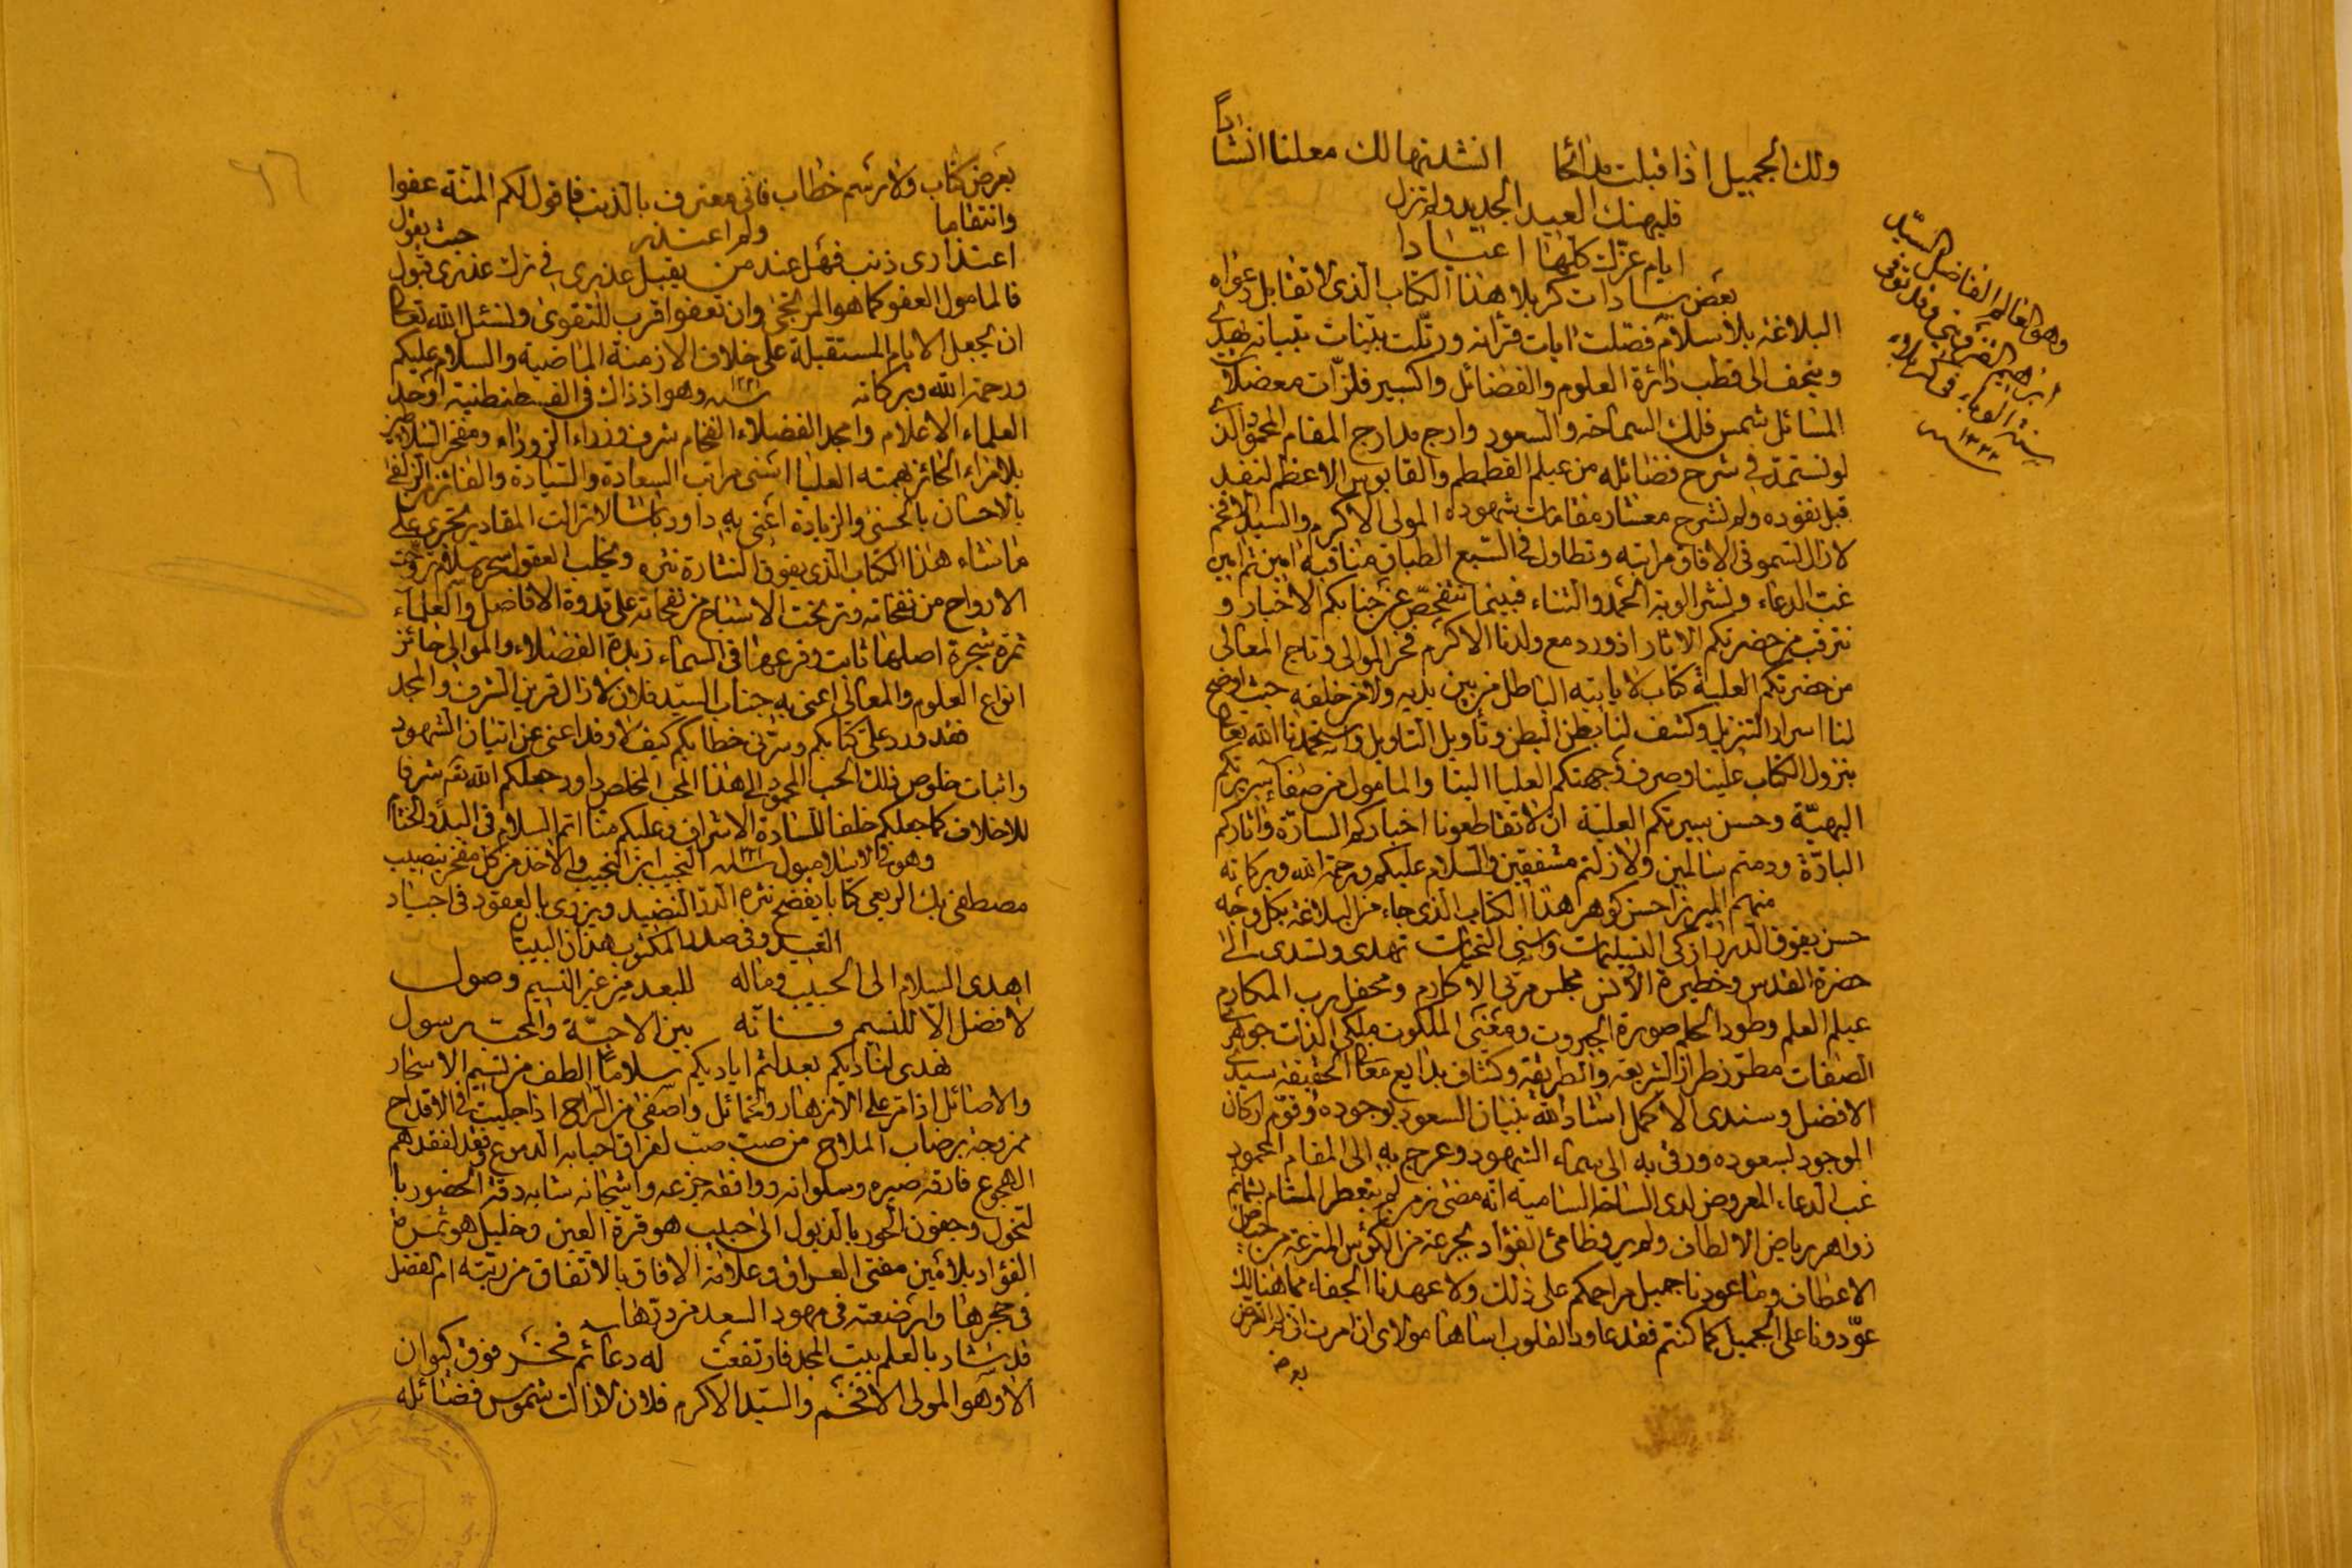 ولك الجميل اذا قبلت مدائحا انشدتها لك معلنا انشادًا
فليهنك العيد الجديد ولم تزل
ايام عزك كلها اعيادا
بعض سادات كربلا هذا الكتاب الذى لا تقابل دعواه
البلاغة بلا سلام فصّلت ايات قرانه ورتّلت بينات تبيانه نهدى
ونتحف الى قطب دائرة العلوم والفضائل واكسير فلزّات معضلات
المسائل شمس فلك السماحة والسعود وارج مدارج المقام المحمود الذى
لو نستمدّ في شرح فضائله من عيلم الغطمطم والقابوس الاعظم لنفد
قبل نفوده ولم نشرح معشار مقامات شهوده المولى الاكرم والسيد الافخم
لا زال تسمو فى الافاق مراتبه وتطاول فى السبع الطباق مناقبه امين ثم امين
غبّ الدعاء ونشر الوية الحمد والثناء فبينما نتفحّص عن جنابكم الاخبار و
نترقب من حضرتكم الاثار اذ ورد مع ولدنا الاكرم فخر الموالى وتاج المعالى
من حضرتكم العلية كتاب لا ياتيه الباطل من بين يديه ولا من خلفه حيث اوضح
لنا اسرار التنزيل وكشف لنا بطن البطن وتأويل التاويل واستحمدنا الله تعالى
بنزول الكتاب علينا وصرف وجهتكم العليا الينا والمامول من صفاء سريرتكم
البهيّة وحسن سيرتكم العليّة ان لا تقاطعونا اخباركم السارّة واثاركم
البارّة ودمتم سالمين ولا زلتم مشفقين والسلام عليكم ورحمة الله وبركاته
منهم الميرزا حسن كوهر هذا الكتاب الذى جاء من البلاغة بكل وجه
حسن يفوق الدرر ازكى التسليمات واسنى التحيات تهدى وتسدى الى
حضرة القدس وحظيرة الانس مجلس مربّي الاكارم ومحفل رب المكارم
عيلم العلم وطود الحلم صورة الجبروت ومعنى الملكوت ملكى الذات جوهرى
الصفات مطرّز طراز الشريعة والطريقة وكشاف بدايع معانى الحقيقة سيدى
الافضل وسندى الاكمل اشاد الله بنيان السعود بوجوده وقوّم اركان
الوجود بسعوده ورقى به الى سماء الشهود وعرج به الى المقام المحمود
غب الدعاء المعروض لدى الساحة السامية انه مضى زمن لم يتعطر المشام بشمايم
زواهر رياض الالطاف ولم يرو ظامئ الفؤاد بجرعة من الكؤس المترعة من حياض
الاعطاف وما عودنا جميل مراحمكم على ذلك ولا عهدنا الجفاء مما هنالك
عوّدونا على الجميل كما كنتم فقد عاود القلوب اساها مولاى ان مرت
وهو العالم الفاضل السيّد
ابراهيم القزوينى وقد توفى
سنة الوباء فى كربلا
بعرض كتاب ولا برسم خطاب فانى معترف بالذنب فاقول لكم المنّة عفوا
وانتقاما ولم اعتذر حيث يقول
اعتذارى ذنب فهل عند من يقبل عذرى فى ترك عذرى قبول
فالمامول العفو كما هو المرتجى وان تعفوا اقرب للتقوى ونسئل الله تعالى
ان يجعل الايام المستقبلة على خلاف الازمنة الماضية والسلام عليكم
ورحمة الله وبركاته وهو اذ ذاك فى القسطنطنية اوحد
العلماء الاعلام وامجد الفضلاء الفخام شرف وزراء الزوراء ومفخر السلاطين
بلا مراء الحائز بهمته العليا اسنى مراتب السعادة والسيادة والفائز من الزلفى
بالاحسان بالحسنى والزيادة اعنى به داود باشا لا زالت المقادير تجرى على
ما شاء هذا الكتاب الذى يفوق النثارة نثره ويخلب العقول سحره سلام تروّحت
الارواح من نفحاته وترنحت الاشباح من نفحاته على قدوة الافاضل والعلماء
ثمرة شجرة اصلها ثابت وفرعها فى السماء زبدة الفضلاء والموالى حائز
انواع العلوم والمعالى اعنى به جناب السيد فلان لا زال قرين الشرف والمجد
فقد ورد علىّ كتابكم وسرّنى خطابكم كيف لا وقد اغنى عن اتيان الشهود
واثبات خلوص ذلك الحب المحمود الى هذا المحب المخلص داود جعلكم الله تع شرفا
للاخلاف كما جعلكم خلفا للسادة الاشراف وعليكم منّا اتم السلام فى البدؤ والختام
وهو فى اسلامبول النجيب ابن النجيب والاخذ من كل مفخر بنصيب
مصطفى بك الربعى كتابا يفضح نثره الدرّ النضيد ويزرى بالعقود فى اجياد
الغيد وفى صدر المكتوب هذان البيتان
اهدى السلام الى الحبيب وماله للبعد من غير النسيم وصول
لا فضل الّا للنسيم فانّه بين الاحبّة والمحب رسول
نهدى لناديكم بعد لثم اياديكم سلاما الطف من نسيم الاسحار
والاصائل اذا مرّ على الازهار والخمائل واصفى من الراح اذا جليت فى الاقداح
ممزوجة برضاب الملاح من صبّ صبّ لفراق احبابه الدموع وفقد لفقدهم
الهجوع فارقه صبره وسلوانه ووافقه جزعه واشجانه شابه دقة الخصور با
لنحول وجفون الحور بالذبول الى حبيب هو قرة العين وخليل هو ثمرة
الفؤاد بلا مين مفتى العراق وعلامة الافاق بالاتفاق من ربّته ام الفضل
فى حجرها وارضعته فى مهود السعد من درّها
قد شاد بالعلم بيت المجد فارتفعت له دعائم فخر فوق كيوان
الا وهو المولى الافخم والسيد الاكرم فلان لا زالت شموس فضائله